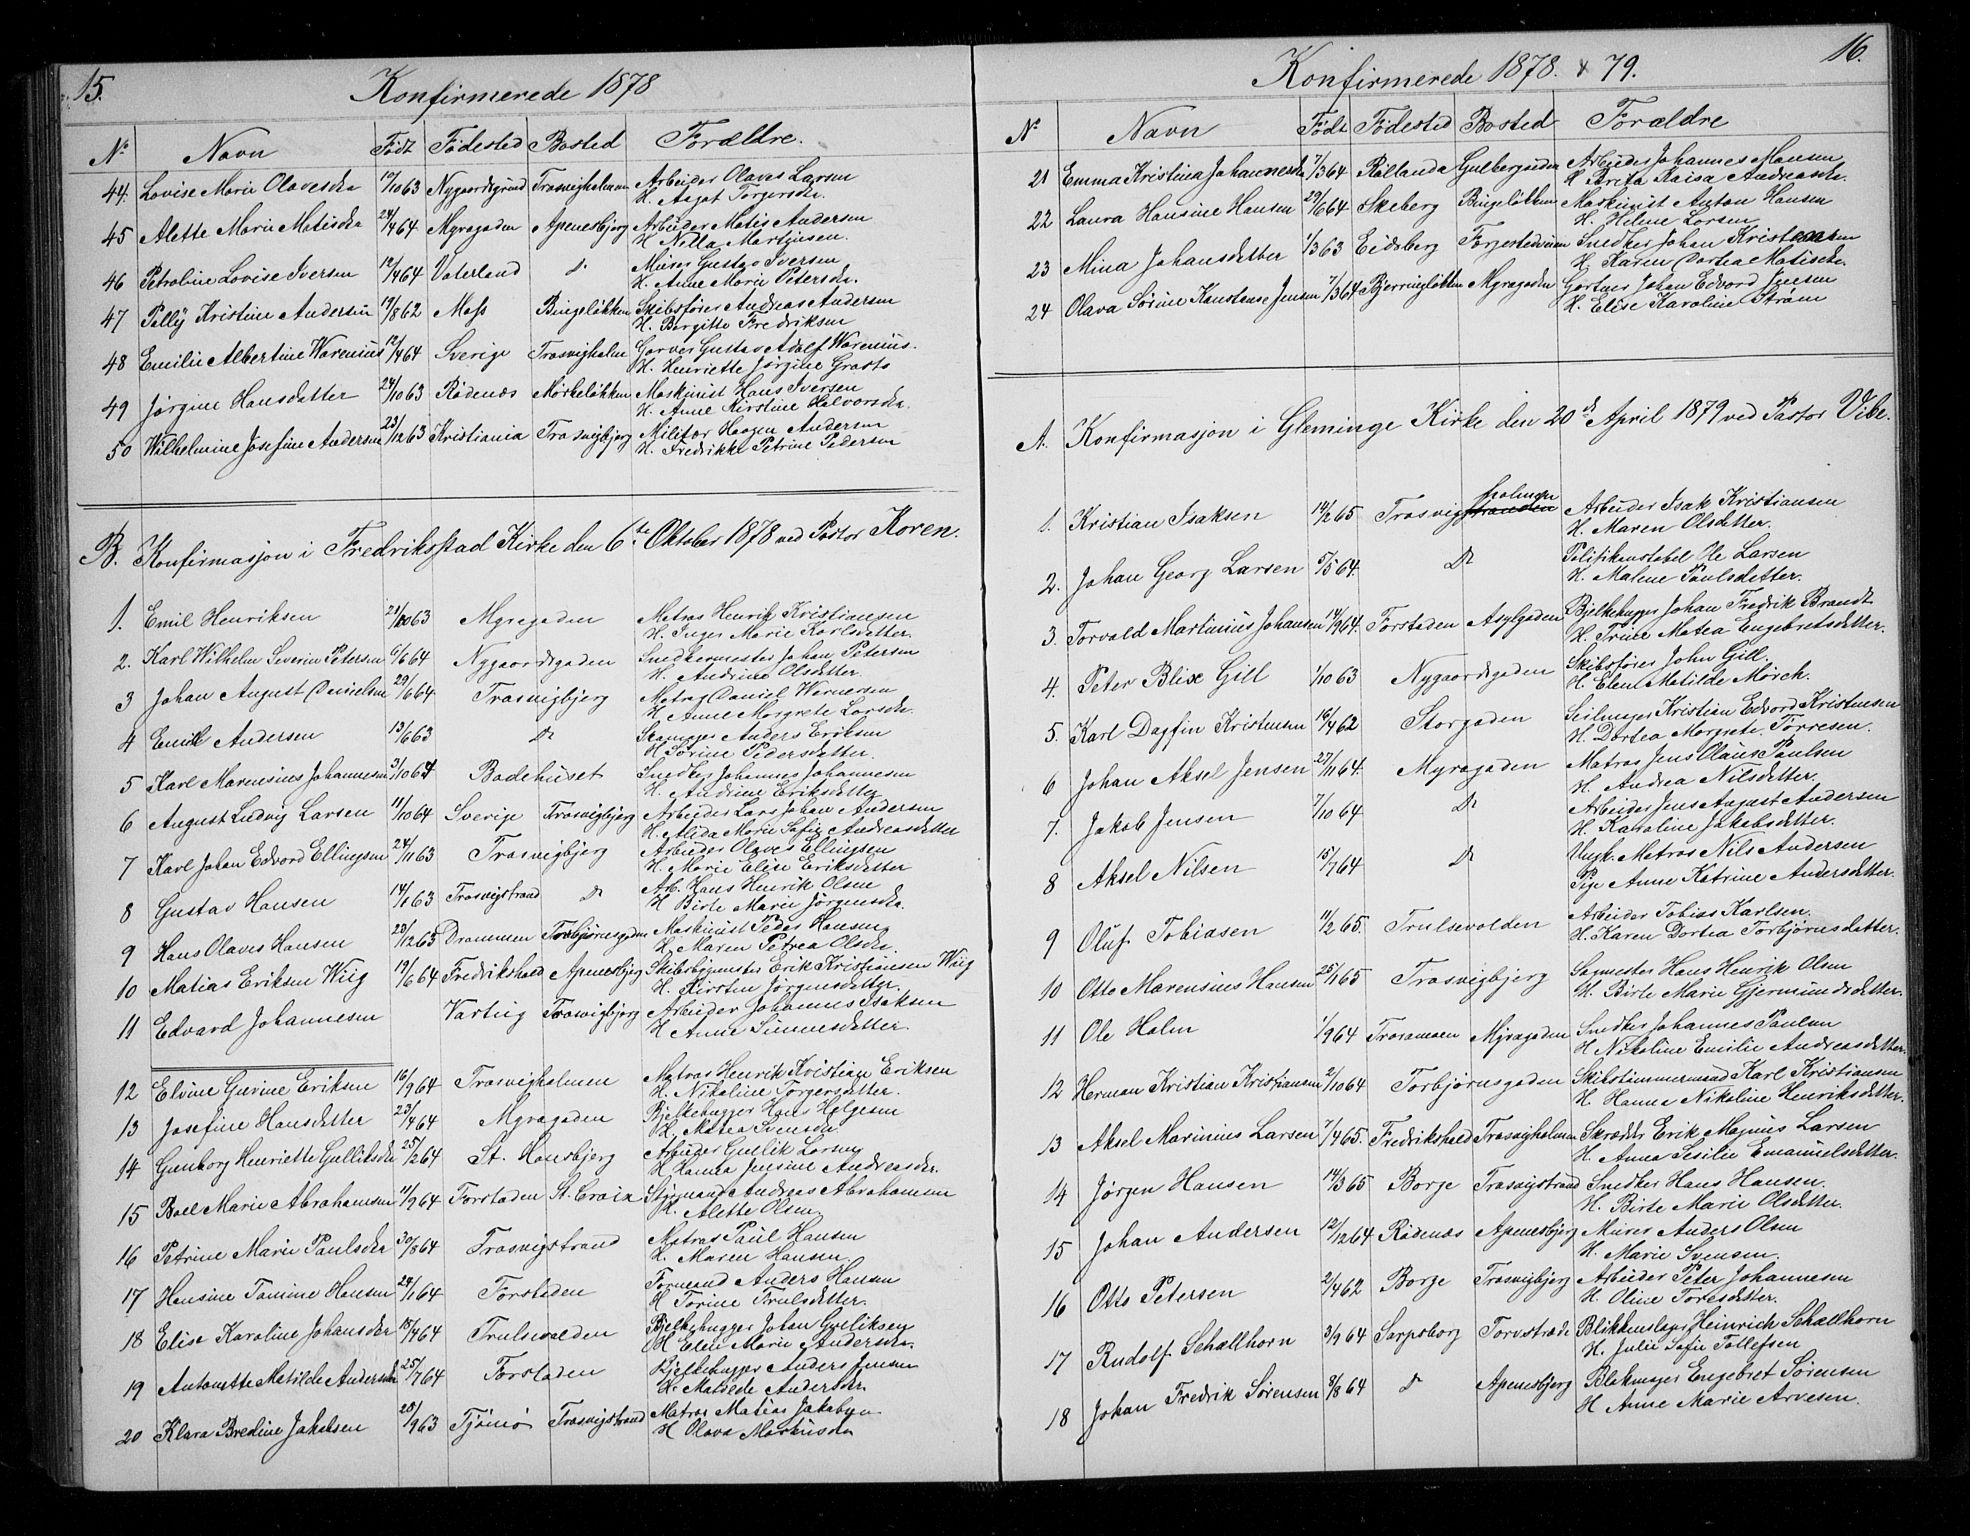 15.
Konfirmerede 1878
No Navn Født Fødested Bosted Forældre.
44. Lovise Marie Olavesdr 12/10 63 Nygaardsgrund Trosvigholmen Arbeider Olaves Larsen
H. Aagot Torgersdr.
45 Alette Marie Matisdr 24/4 64 Myragaden Apenesbjerg Arbeider Matis Andersen
H. Nilla Martinsen.
46 Petroline Lovise Iversen 12/4 64 Vaterland do Murer Gustav Iversen
H. Anne Marie Petersdr.
47 Pelly Kristine Andersen 19/8 62 Moss Bingeløkken Skibsfører Andreas Andersen
H. Bergitte Fredriksen
48 Emilie Albertine Warenius 12/4 64 Sverige Trosvigholm Garver Gustav Adolf Warenius.
H. Henriette Jørgine Grasto
49 Jørgine Hansdatter 24/10 63 Rødenæs Mørkeløkken Maskinist Hans Iversen
H. Anne Kirstine Halvorsdr.
50 Wilhelmine Josefine Andersen 23/12 63 Kristiania Trosvigbjerg Militær Haagen Andersen
H. Fredrikke Petrine Pedersen
B. Konfirmasjon i Fredriksstad Kirke den 6te Oktober 1878 ved Pastor Koren.
1. Emil Henriksen 21/10 63 Myragaden Matros Henrik Kristiansen
H. Inger Marie Karlsdetter.
2. Karl Wilhelm Severin Petersen 6/6 64 Nygaardsgaden Snedkermester Johan Petersen
H. Andrine Olsdetter.
3 Johan August Danielsen 29/6 64 Trosvigbjerg Matros Daniel Wernersen
H. Anne Margrete Larsdr.
4 Emil Andersen 13/6 63 do Anders Eriksen
H. Sørine Pedersdetter.
5 Karl Marensius Johannesen 3/10 64 Badehuset Snedker Johannes Johannesen
H. Andrine Eriksdetter
6 August Ludvig Larsen 11/10 64 Sverige Trosvigbjerg Arbeider Lars Johan Andersen
H. Alida Marie Sofie Andreasdetter
7 Karl Johan Edvard Ellingsen 24/11 63 Trosvigbjerg Arbeider Olaves Ellingsen
H. Marie Elise Eriksdetter
8 Gustav Hansen 14/1 63 Trosvigstrand do Arb. Hans Henrik Olsen
H. Birte Marie Jørgensdr.
9 Hans Olaves Hansen 23/12 63 Drammen Torbjørnsgaden Maskinist Peder Hansen
H. Maren Petrea Olsdr.
10 Matias Eriksen Wiig 19/6 64 Fredrikshald Apenesbjerg Skibsbygmester Erik Kristiansen Wiig
H. Kirsten Jørgensdetter.
11 Edvard Johannesen Varteig Trosvigbjerg Arbeider Johannes Isaksen
H. Anne Simensdetter.
12 Elvine Gurine Eriksen 16/9 64 Trosvigholmen Matros Henrik Kristian Eriksen
H. Nikoline Torgersdetter.
13 Josefine Hansdetter 23/4 64 Myragaden Bjelkehugger Hans Helgesen
H. Matea Svensdr
14 Gunborg Henriette Gulliksdr 25/2 64 St. Hansbjerg Arbeider Gullik Larsen
H. Hanna Jensine Andreasdr.
15 Boel Marie Abrahamsen 11/9 64 Forstaden St. Croix Styrmand Andreas Abrahamsen
H. Alette Olsen.
16 Petrine Marie Paulsdr 30/8 64 Trosvigstrand Matros Paul Hansen
H. Maren Hansen.
17 Hansine Tomine Hansen 24/1 64 Forstaden Formand Anders Hansen
H. Torine Trulsdetter.
18 Elise Karoline Johansdr 15/4 64 Trulsevolden Bjelkehugger Johan Gulliksen
H. Elen Marie Andersdr.
19 Antonette Matilde Andersdr 25/7 64 Forstaden Bjelkehugger Anders Jensen
H. Matilde Andersdr.
20 Klara Bredine Jakobsen 28/9 63 Tjømø Trosvigstrand Matros Matias Jakobsen
H. Olava Markusdr
16.
Konfirmerede 1878. & 79.
No Navn Født Fødested Bosted Forældre
21 Emma Kristina Johannesdr 7/3 64 Rollanda Gulbergsiden Arbeider Johannes Monsen
H. Brita Kaisa Andreasdr.
22 Laura Hansine Hansen 29/6 64 Skeberg Bingeløkken Maskinist Anton Hansen
H. Helene Larsen
23 Mina Johansdetter 1/3 63 Eidsberg Torjestedveien Snedker Johan Kristensen
H. Karen Dortea Matisdr.
24 Olava Sørine Konstanse Jensen 7/3 64 Bjerringløkken Myragaden Gartner Johan Edvard Jensen
H. Elise Karoline Strøm
A. Konfirmasjon i Gleminge Kirke den 20de April 1879 ved Pastor Vibe.
1. Kristian Isaksen 14/2 65 Trosvigstranden holmen Arbeider Isak Kristiansen
H. Maren Olsdetter.
2. Johan Georg Larsen 5/5 64. do Politikonstabel Ole Larsen
H. Malene Paulsdetter.
3. Torvald Martinius Johansen 14/9 64. Forstaden Asylgaden Bjelkehugger Johan Fredrik Brandt
H. Trine Matea Engebretsdetter.
4. Peter Blix Gill 1/10 63 Nygaardsgaden Skibsfører John Gill.
H. Elen Matilde Mørch.
5. Karl Dagfin Kristensen 16/4 62 Storgaden Seilmager Kristian Edvard Kristensen
H. Dortea Margrete Torresen.
6 Johan Aksel Jensen 27/11 64. Myragaden Matros Jens Claus Paulsen
H. Andrea Nilsdetter.
7. Jakob Jensen 7/10 64 do Arbeider Jens August Andersen
H. Karoline Jakobsdetter.
8 Aksel Nilsen 15/7 64 do Ungk. Matros Nils Andersen
Pige Anne Katrine Andersdetter.
9 Oluf Tobiasen 11/2 65. Trulsevolden Arbeider Tobias Karlsen.
H. Karen Dortea Torbjørnsdatter.
10 Otto Marensius Hansen 25/1 65 Trosvigbjerg Sagmester Hans Henrik Olsen
H. Birte Marie Gjermundsdetter.
11 Ole Holm 1/9 64 Trosamoen Myragaden Snedker Johannes Paulsen
H Nikoline Emilie Andreasdetter.
12 Herman Kristian Kristiansen 2/10 64 Torbjørnsgaden Skibstømmermand Karl Kristiansen
H. Hanna Nikoline Henriksdetter.
13 Aksel Marinius Larsen 7/4 65. Fredrikshald Trosvigholmen Skrædder Erik Magnus Larsen
H. Anna Sesilie Emanuelsdetter.
14 Jørgen Hansen 14/3 65 Borge Trosvigstrand Snedker Hans Hansen.
H. Birte Marie Olsdetter.
15 Johan Andersen 12/12 64 Rødenæs Apenesbjerg Murer Anders Olsen
H. Marie Svensen.
16 Otto Petersen 2/4 62 Borge Trosvigbjerg Arbeider Peter Johannesen
H. Oline Toresdetter.
17 Rudolf Schallhorn 3/9 64 Sarpsborg Torvstræde Blikkenslager Heinrich Schallhorn
H. Julie Sofie Tollefsen
18 Johan Fredrik Sørensen 8/8 64 do Apenesbjerg Blokmager Engebret Sørensen
H Anne Marie Arvesen.